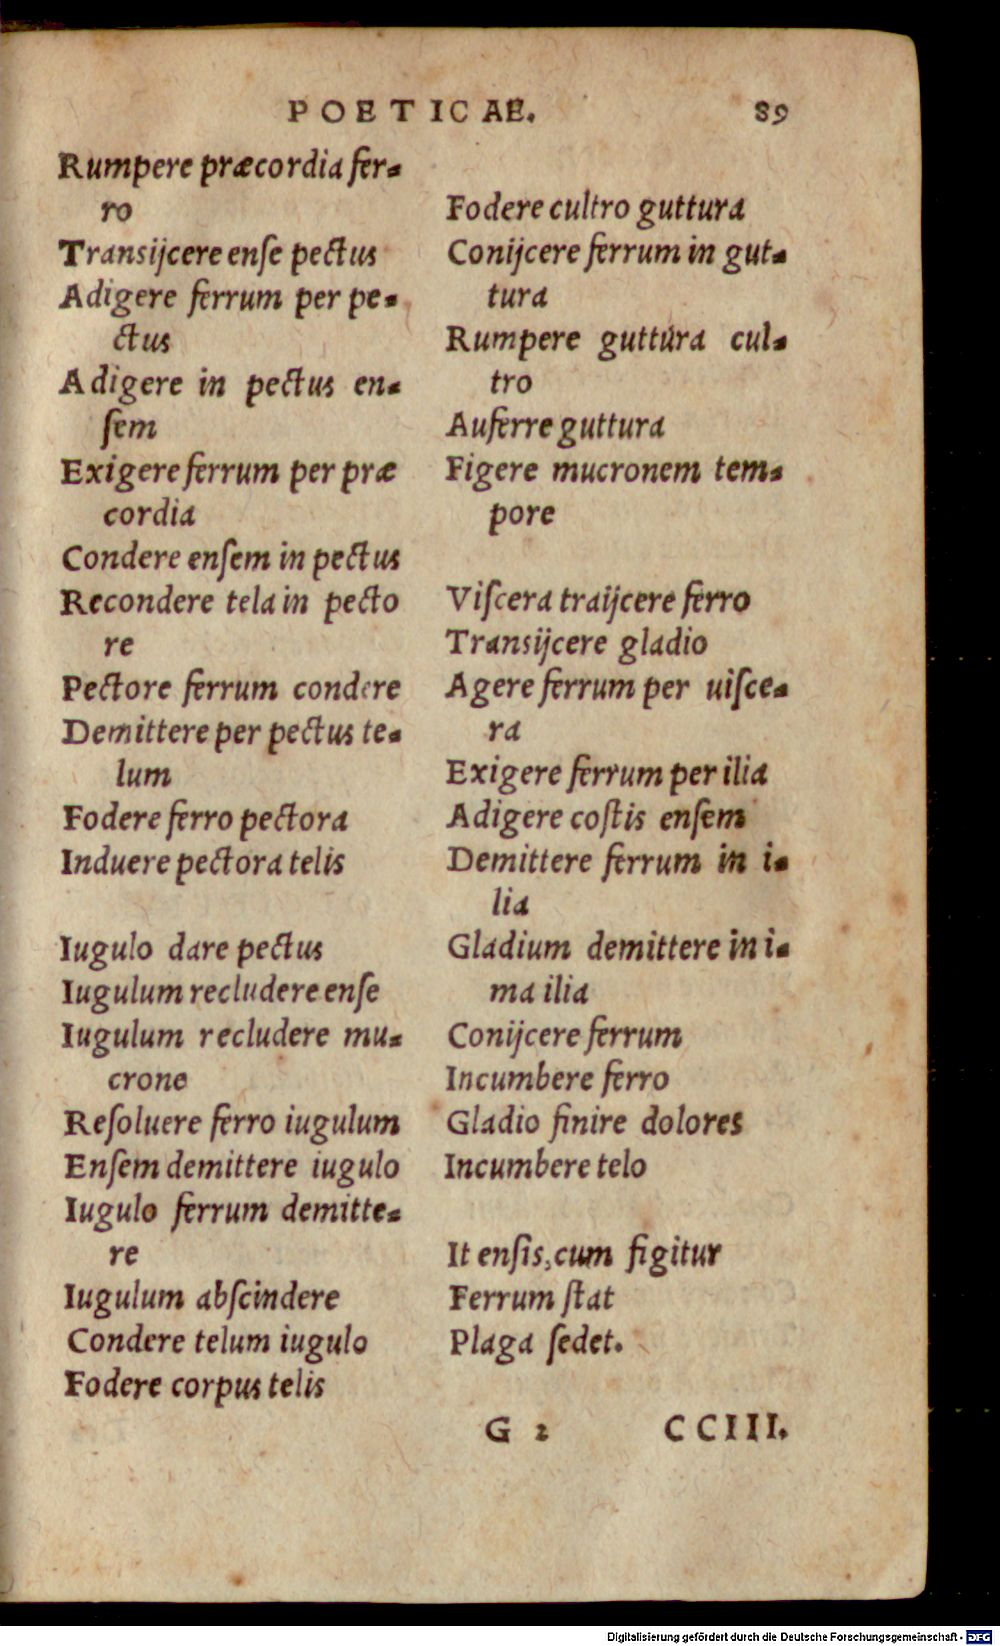 POETICAE. 89
Rumpere præcordia fer-
ro
Transijcere enſe pectus
Adigere ferrum per pe-
ctus
Adigere in pectus en-
ſem
Exigere ferrum per præ
cordia
Condere enſem in pectus
Recondere tela in pecto
re
Pectore ferrum condere
Demittere per pectus te-
lum
Fodere ferro pectora
Induere pectora telis
Iugulo dare pectus
Iugulum recludere enſe
Iugulum recludere mu-
crone
Reſoluere ferro iugulum
Enſem demittere iugulo
Iugulo ferrum demitte-
re
Iugulum abſcindere
Condere telum iugulo
Fodere corpus telis
Fodere cultro guttura
Conijcere ferrum in gut-
tura
Rumpere guttura cul-
tro
Auferre guttura
Figere mucronem tem-
pore
Viſcera traijcere ferro
Transijcere gladio
Agere ferrum per uiſce-
ra
Exigere ferrum per ilia
Adigere coſtis enſem
Demittere ferrum in i-
lia
Gladium demittere in i-
ma ilia
Conijcere ferrum
Incumbere ferro
Gladio finire dolores
Incumbere telo
It enſis, cum figitur
Ferrum ſtat
Plaga ſedet.
G 2 CCIII.
Digitalisierung gefördert durch die Deutsche Forschungsgemeinschaft - DFG